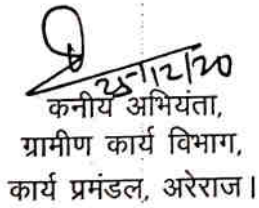 25/12/20
कनीय अभियंता,
ग्रामीण कार्य विभाग,
कार्य प्रमंडल, अरेराज।